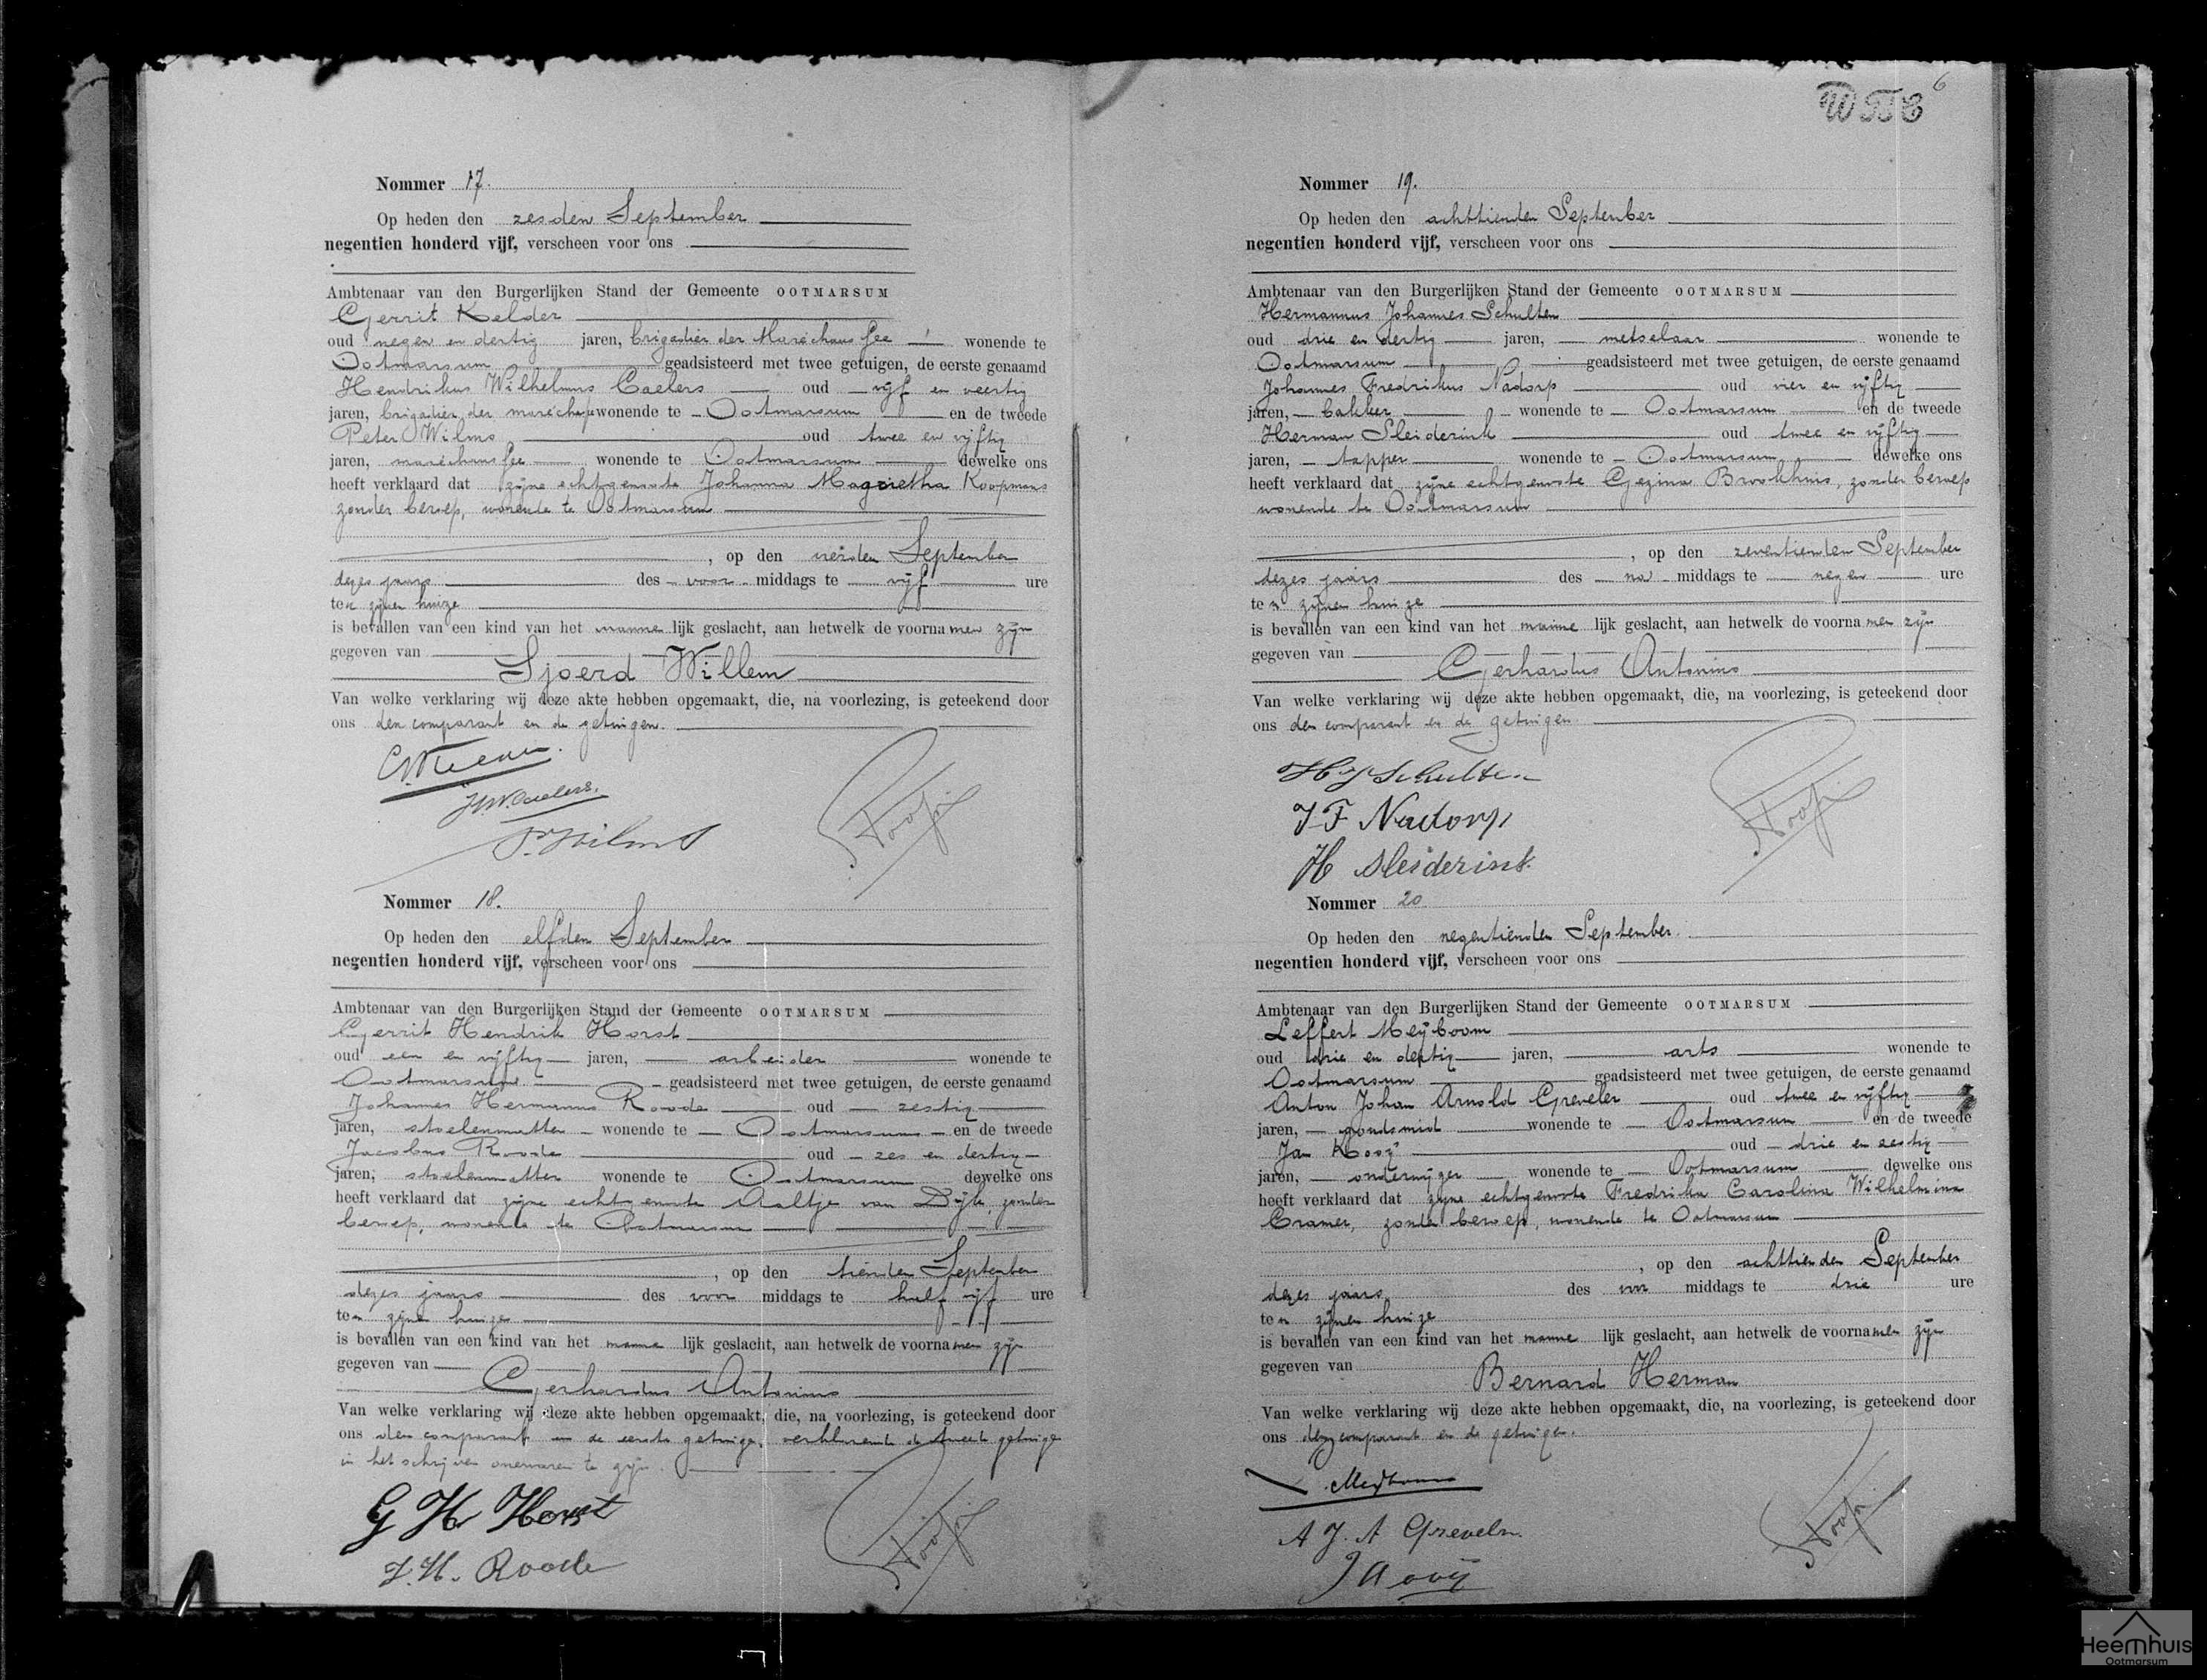 6
WBC
Nommer 17.
Op heden den zesden September
negentien honderd vijf, verscheen voor ons
Ambtenaar van den Burgerlijken Stand der Gemeente OOTMARSUM
Gerrit Kelder
oud negen en dertig jaren, brigadier der Marechaussee wonende te
Ootmarsum geadsisteerd met twee getuigen, de eerste genaamd
Hendrikus Wilhelmus Caelers oud vijf en veertig
jaren, brigadier der marechaussee wonende te Ootmarsum en de tweede
Peter Wilms oud twee en vijftig
jaren, marechaussee wonende te Ootmarsum dewelke ons
heeft verklaard dat zijne echtgenoote Johanna Magrietha Koopmans
zonder beroep, wonende te Ootmarsum
, op den vierden September
dezes jaars des voor middags te vijf ure
ten zijnen huize
is bevallen van een kind van het manne lijk geslacht, aan hetwelk de voornamen zijn
gegeven van
Sjoerd Willem
Van welke verklaring wij deze akte hebben opgemaakt, die, na voorlezing, is geteekend door
ons den comparant en de getuigen.
H.W. Caelers.
P. Wilms
Nommer 18.
Op heden den elfden September
negentien honderd vijf, verscheen voor ons
Ambtenaar van den Burgerlijken Stand der Gemeente OOTMARSUM
Gerrit Hendrik Horst
oud een en vijftig jaren, arbeider wonende te
Ootmarsum geadsisteerd met twee getuigen, de eerste genaamd
Johannes Hermannus Roode oud zestig
jaren, stoelenmatter wonende te Ootmarsum en de tweede
Jacobus Roode oud zes en dertig
jaren, stoelenmatter wonende te Ootmarsum dewelke ons
heeft verklaard dat zijne echtgenoote Aaltje van Dijk, zonder
beroep, wonende te Ootmarsum
, op den tienden September
dezes jaars des voor middags te half vijf ure
ten zijne huize
is bevallen van een kind van het manne lijk geslacht, aan hetwelk de voornamen zijn
gegeven van
Gerhardus Antonius
Van welke verklaring wij deze akte hebben opgemaakt, die, na voorlezing, is geteekend door
ons den comparant en de eerste getuige, verklarende de tweede getuige
in het schrijven onervaren te zijn.
G H Horst
J. H. Roode
Nommer 19.
Op heden den achttienden September
negentien honderd vijf, verscheen voor ons
Ambtenaar van den Burgerlijken Stand der Gemeente OOTMARSUM
Hermannus Johannes Schulten
oud drie en dertig jaren, metselaar wonende te
Ootmarsum geadsisteerd met twee getuigen, de eerste genaamd
Johannes Fredrikus Nadorp oud vier en vijftig
jaren, bakker wonende te Ootmarsum en de tweede
Herman Sleiderink oud twee en vijftig
jaren, tapper wonende te Ootmarsum dewelke ons
heeft verklaard dat zijne echtgenoote Gezina Brookhuis, zonder beroep
wonende te Ootmarsum
, op den zeventienden September
dezes jaars des na middags te negen ure
ten zijnen huize
is bevallen van een kind van het manne lijk geslacht, aan hetwelk de voornamen zijn
gegeven van
Gerhardus Antonius
Van welke verklaring wij deze akte hebben opgemaakt, die, na voorlezing, is geteekend door
ons den comparant en de getuigen
H J Schulten
J F Nadorp
H Sleiderink.
Nommer 20
Op heden den negentienden September
negentien honderd vijf, verscheen voor ons
Ambtenaar van den Burgerlijken Stand der Gemeente OOTMARSUM
Leffert Meijboom
oud drie en dertig jaren, arts wonende te
Ootmarsum geadsisteerd met twee getuigen, de eerste genaamd
Anton Johan Arnold Greveler oud twee en vijftig
jaren, goudsmid wonende te Ootmarsum en de tweede
Jan Kooij oud drie en zestig
jaren, onderwijzer wonende te Ootmarsum dewelke ons
heeft verklaard dat zijne echtgenoote Fredrika Carolina Wilhelmina
Cramer, zonder beroep, wonende te Ootmarsum
, op den achttienden September
dezes jaars des voor middags te drie ure
ten zijnen huize
is bevallen van een kind van het manne lijk geslacht, aan hetwelk de voornamen zijn
gegeven van
Bernard Herman
Van welke verklaring wij deze akte hebben opgemaakt, die, na voorlezing, is geteekend door
ons den comparant en de getuigen.
L. Meijboom
A. J. A Greveler
J Kooij
Heemhuis
Ootmarsum